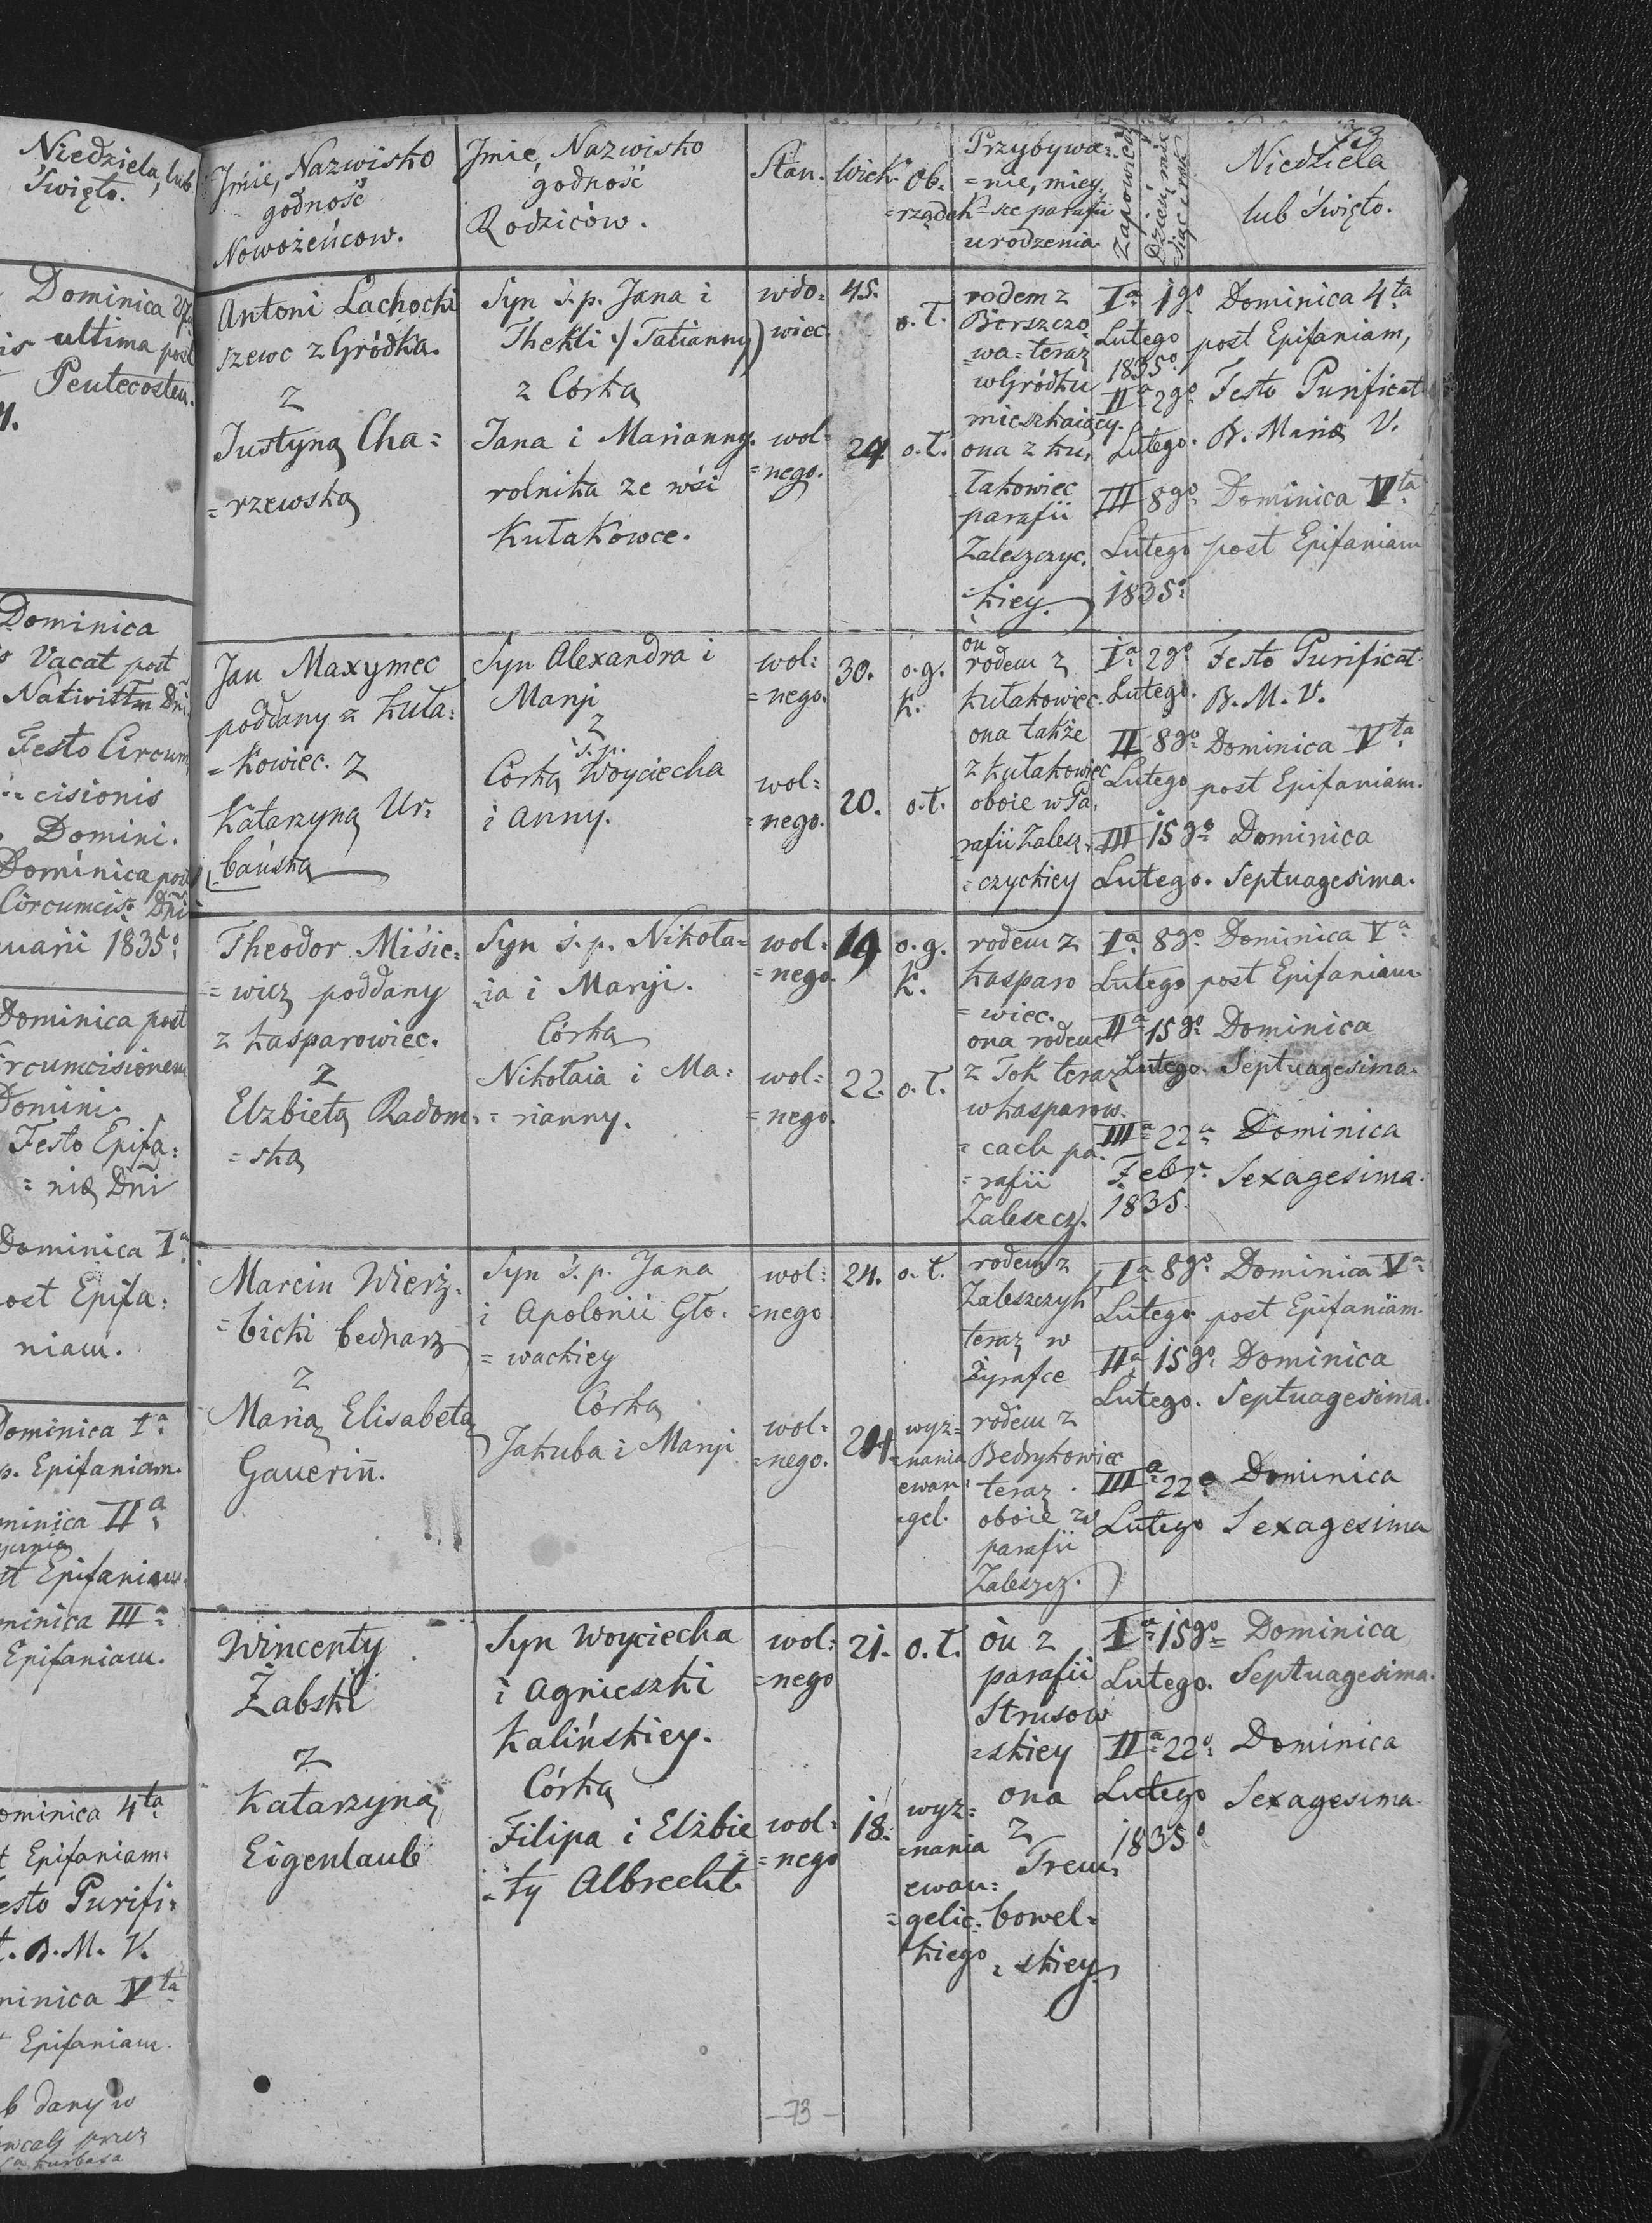 Niedziela, lub
Święto.
Dominica 27
ultima post
Pentecosten.
Dominica
Vacat post
Nativitm Dni
Festo Circum
cisionis
Domini.
Dominica post
Circumcis. Dni
1835
Dominica post
Circumcisionem
Domini.
Festo Epifa:
=niæ Dni
Dominica Iª
post Epifa:
niam.
Dominica Iª
p. Epifaniam.
Dominica IIª
Epifaniam
Dominica IIIª
Epifaniam.
Dominica 4ta
Epifaniam.
Festo Purifi=
B. M. V.
Dominica Vta
Epifaniam.
dany w
przez
73
Jmie, Nazwisko
godność
Nowożeńcow.
Jmie, Nazwisko
godność
Rodziców.
Stan.
Wiek.
Ob.
=rządek
Przybywa=
=nie, miey.
=sce parafii
urodzenia
Zapowiedzi
Dzień, mie
siąc i rok
Niedziela
lub Święto.
Antoni Lachocki
szewc z Gródka.
z
Justyną Cha=
=rzewską
Syn ś.p. Jana i
Thekli :/ Tatianny)
z Córką
Jana i Marianny.
rolnika ze wśi
Kułakowce.
wdo=
wiec.
wol=
=nego.
45.
24.
o. ł.
o. ł.
rodem z
Borszczo
=wa= teraz
w Gródku
mieszkaiący.
ona z Ku=
łakowiec
parafii
Zaleszczyc.
=kiey.
Iª 1go
Lutego
1835º
IIª 2go
Lutego.
III 8go
Lutego
1835º
Dominica 4ta
post Epifaniam,
Festo Purificat.
B. Mariæ V.
Dominica Vta
post Epifaniam
Jan Maxymec
poddany z Kuła=
=kowiec. z
Katarzyną Ur=
bańską
Syn Alexandra i
Maryi
z
ś. p.
Córką Woyciecha
i Anny.
wol=
=nego.
wol=
=nego.
30.
20.
o. g.
k.
o. ł.
on
rodem z
Kułakowiec.
ona także
z Kułakowiec
oboie w Pa=
rafii Zalesz=
=czyckiey
Iª 2go
Lutego.
II 8go
Lutego
III 15go
Lutego.
Festo Purificat.
B. M. V.
Dominica Vta
post Epifaniam.
Dominica
Septuagesima.
Theodor Miśie=
=wicz poddany
z Kasparowiec.
z
Elzbietą Radom=
=ską
Syn ś. p. Nikoła=
=ia i Maryi.
Córką
Nikołaia i Ma=
=rianny.
wol=
=nego.
wol=
=nego.
19
22.
o. g.
k.
o. ł.
rodem z
Kasparo
=wiec.
ona rodem
z Tok teraz
w Kasparow.
=cach pa.
=rafii
Zaleszcz.
Iª 8go
Lutego
IIª 15go
Lutego.
IIIª 22ª
Febr.
1835.
Dominica Vª
post Epifaniam
Dominica
Septuagesima.
Dominica
Sexagesima.
Marcin Wierz=
=bicki bednarz
z
Marią Elisabetą
Gauerin̄.
Syn ś. p. Jana
i Apolonii Gło=
=wackiey
Córką
Jakuba i Maryi
wol=
=nego
wol=
=nego.
24.
24
o. ł.
wyz=
=nania
ewan=
=gel.
rodem z
Zaleszczyk
teraz w
Żyrafce
rodem z
Bedrykowiec
teraz
oboie w
parafii
Zaleszcz.
Iª 8go
Lutego.
IIª 15go
Lutego.
IIIª 22º
Lutego
Dominica Vª
post Epifaniam.
Dominica
Septuagesima.
Dominica
Sexagesima
Wincenty
Żabski
z
Katarzyną
Eigenlaub
Syn Woyciecha
i Agnieszki
Kalińskiey.
Córką
Filipa i Elżbie
=ty Albrecht.
wol=
=nego
wol=
=nego
21.
18.
o. ł.
wyz=
=nania
ewan=
=gelic=
kiego
on z
parafii
Strusow
=skiey
ona
z
Trem=
bowel=
=skiey
Iª 15go
Lutego.
IIª 22º
Lutego
1835º
Dominica
Septuagesima.
Dominica
Sexagesima
-73-